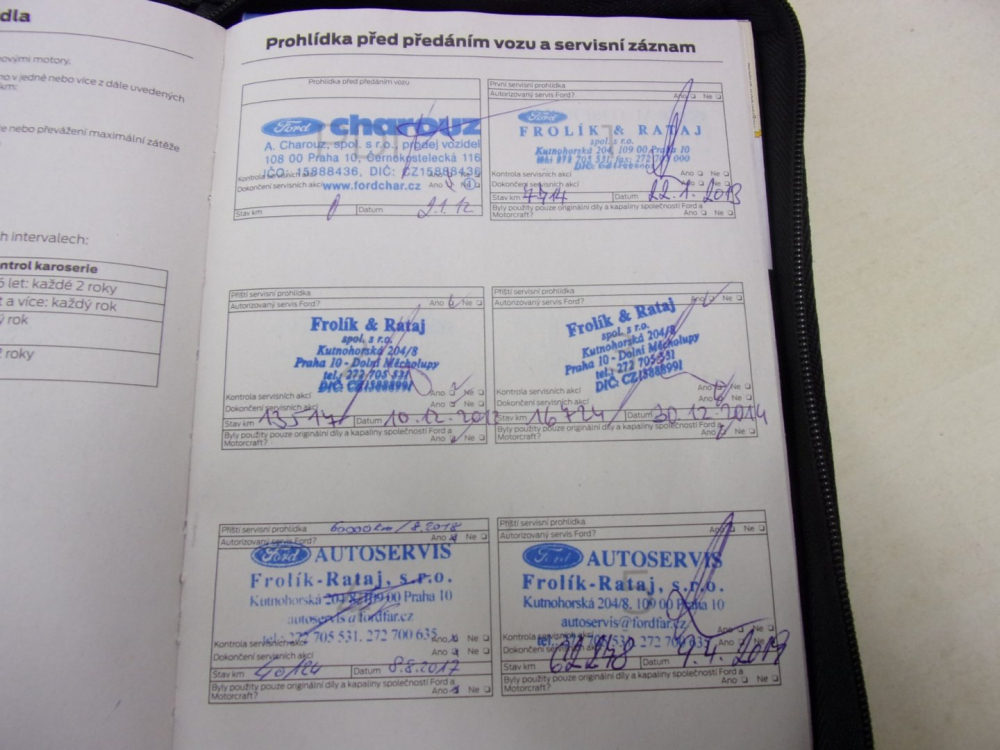 dla
ovými motory.
no v jedné nebo více z dále uvedených
km:
te nebo převážení maximální zátěže
h intervalech:
ntrol karoserie
5 let: každé 2 roky
t a více: každý rok
ý rok
2 roky
Prohlídka před předáním vozu a servisní záznam
Prohlídka před předáním vozu
Ford charouz
A. Charouz, spol. s r.o., prodej vozidel
108 00 Praha 10, Černokostelecká 116
IČO: 15888436, DIČ: CZ15888436
Kontrola servisních akcí
Dokončení servisních akcí www.fordchar.cz Ano
Stav km Datum 2.1.12
První servisní prohlídka
Autorizovaný servis Ford? Ano Ne
Ford
FROLÍK & RATAJ
spol. s r.o.
Kutnohorská 204, 109 00 Praha 10
Kontrola servisních akcí Ano Ne
Dokončení servisních akcí Ano Ne
Stav km 7714 Datum 22.1.2013
Byly použity pouze originální díly a kapaliny společnosti Ford a
Motorcraft? Ano Ne
Příští servisní prohlídka
Autorizovaný servis Ford? Ano Ne
Frolík & Rataj
spol. s r.o.
Kutnohorská 204/8
Praha 10 - Dolní Měcholupy
tel.: 272 705 531
DIČ: CZ15888991
Kontrola servisních akcí Ano Ne
Dokončení servisních akcí Ano Ne
Stav km 13517 Datum 10.12.2013
Byly použity pouze originální díly a kapaliny společnosti Ford a
Motorcraft? Ano Ne
Příští servisní prohlídka
Autorizovaný servis Ford? Ano Ne
Frolík & Rataj
spol. s r.o.
Kutnohorská 204/8
Praha 10 - Dolní Měcholupy
tel.: 272 705 531
DIČ: CZ15888991
Kontrola servisních akcí Ano Ne
Dokončení servisních akcí Ano Ne
Stav km 16724 Datum 30.12.2014
Byly použity pouze originální díly a kapaliny společnosti Ford a
Motorcraft? Ano Ne
Příští servisní prohlídka 60000 km/8.2018
Autorizovaný servis Ford? Ano Ne
Ford AUTOSERVIS
Frolík-Rataj, s.r.o.
Kutnohorská 204/8, 109 00 Praha 10
autoservis@fordfar.cz
tel.: 272 705 531, 272 700 635
Kontrola servisních akcí Ano Ne
Dokončení servisních akcí Ano Ne
Stav km 40124 Datum 8.8.2017
Byly použity pouze originální díly a kapaliny společnosti Ford a
Motorcraft? Ano Ne
Příští servisní prohlídka
Autorizovaný servis Ford? Ano Ne
Ford AUTOSERVIS
Frolík-Rataj, s.r.o.
Kutnohorská 204/8, 109 00 Praha 10
autoservis@fordfar.cz
tel.: 272 705 531, 272 700 635
Kontrola servisních akcí Ano Ne
Dokončení servisních akcí Ano Ne
Stav km 62278 Datum 4. 2019
Byly použity pouze originální díly a kapaliny společnosti Ford a
Motorcraft? Ano Ne